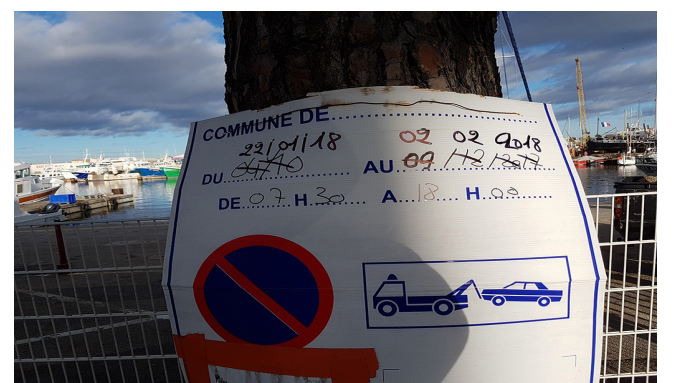 COMMUNE DE
22/01/18 02 02 2018
DU 04/10 AU 09/12/2017
DE 07 H 30 A 18 H 00